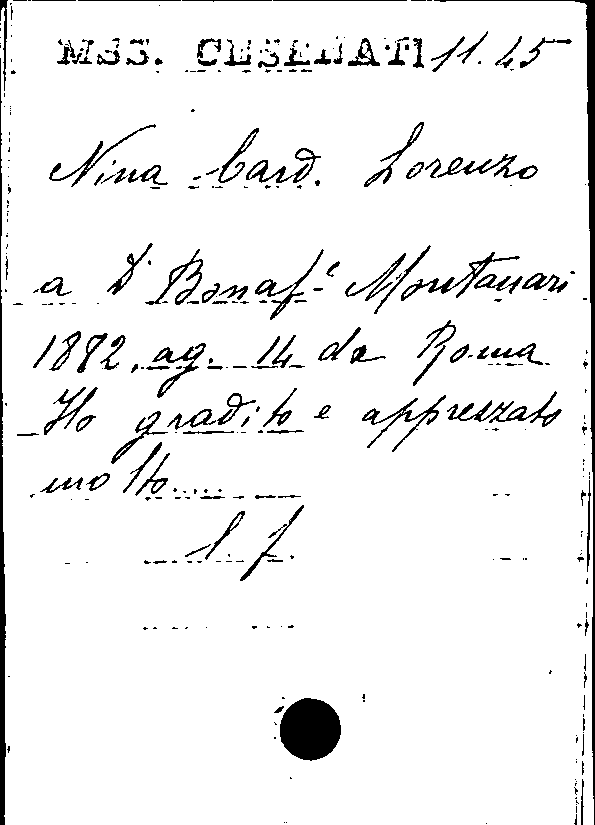 MSS. CESENATI 11.45
Nina Card. Lorenzo
a D. Bonaf.e Montanari
1882, ag. 14 da Roma
Ho gradito e apprezzato
molto....
l. f.